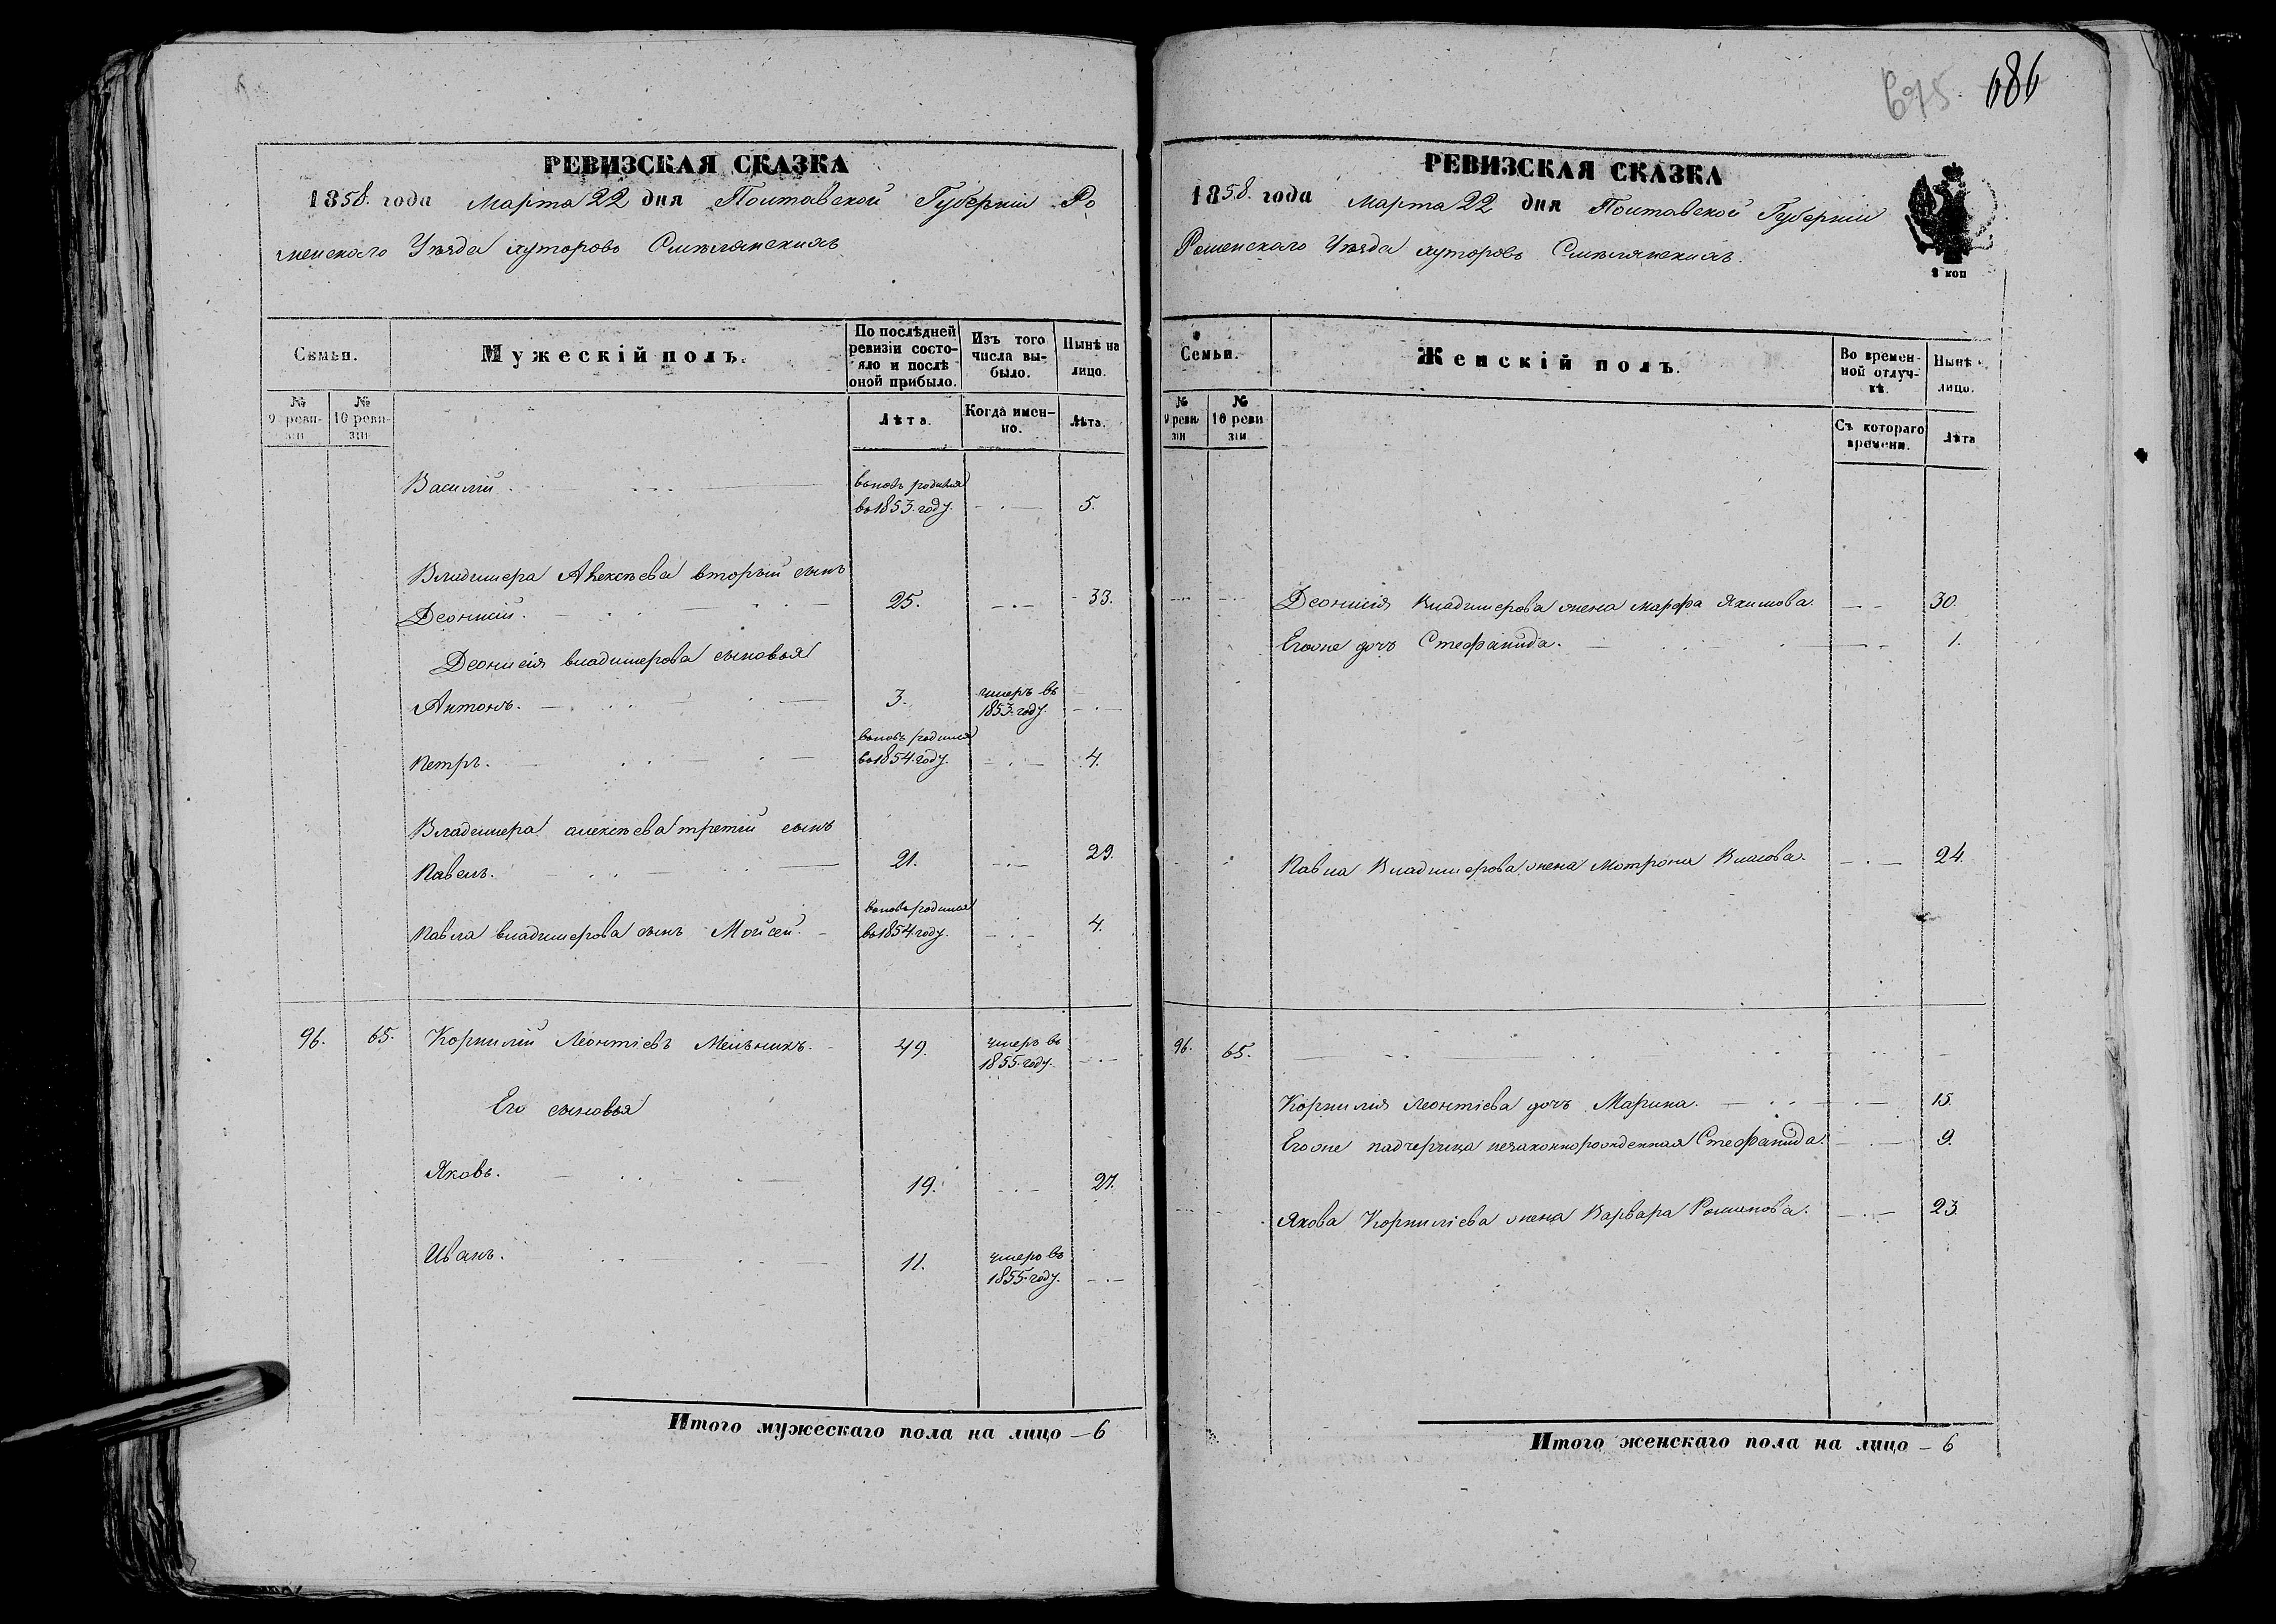 675 686
РЕВИЗСКАЯ СКАЗКА
1858. года Марта 22 дня Полтавской Губерніи Ро
менскаго Уѣзда хуторовъ Смѣлянскихъ
Семьи.
Мужескій полъ.
По послѣдней ревизіи состояло и послѣ оной прибыло.
Изъ того числа выбыло.
Нынѣ на лицо.
№ 9 ревизіи
№ 10 ревизіи
Лѣта.
Когда именно.
Лѣта.
Василій . вновь родился
во 1853. году. 5.
Владимера Алексѣева вторый сынъ
Деонисій. 25. 33.
Деонисія владимерова сыновья
Антонъ. 3. умеръ въ
1853. году.
Петръ. вновь родился
во 1854. году. 4.
Владимера алексѣева третій сынъ
Павелъ. 21. 29.
Павла владимерова сынъ Мойсей. вновь родился
во 1854 году. 4.
96. 65. Корнилій Леонтіевъ Мельникъ. 49. умеръ въ
1855. году.
Его сыновья
Яковъ. 19. 27.
Иванъ. 11. умеръ въ
1855. году.
Итого мужескаго пола на лицо – 6
РЕВИЗСКАЯ СКАЗКА
1858. года Марта 22 дня Полтавской Губерніи
Роменскаго Уѣзда хуторовъ Смѣлянскихъ.
8 коп
Семьи.
Женскій полъ.
Во временной отлучкѣ.
Нынѣ лицо.
№ 9 ревизіи
№ 10 ревизіи
Съ котораго времени.
Лѣта
Деонисія Владимерова жена марфа Якимова. 30.
Егоже дочь Стефанида. 1.
Павла Владимерова жена Мотрона Власова. 24.
96. 65.
Корнилія Леонтіева дочь Марина. 15.
Егоже падчерица незаконнорожденная Стефанида. 9.
Якова Корниліева жена Варвара Романова. 23.
Итого женскаго пола на лицо – 6